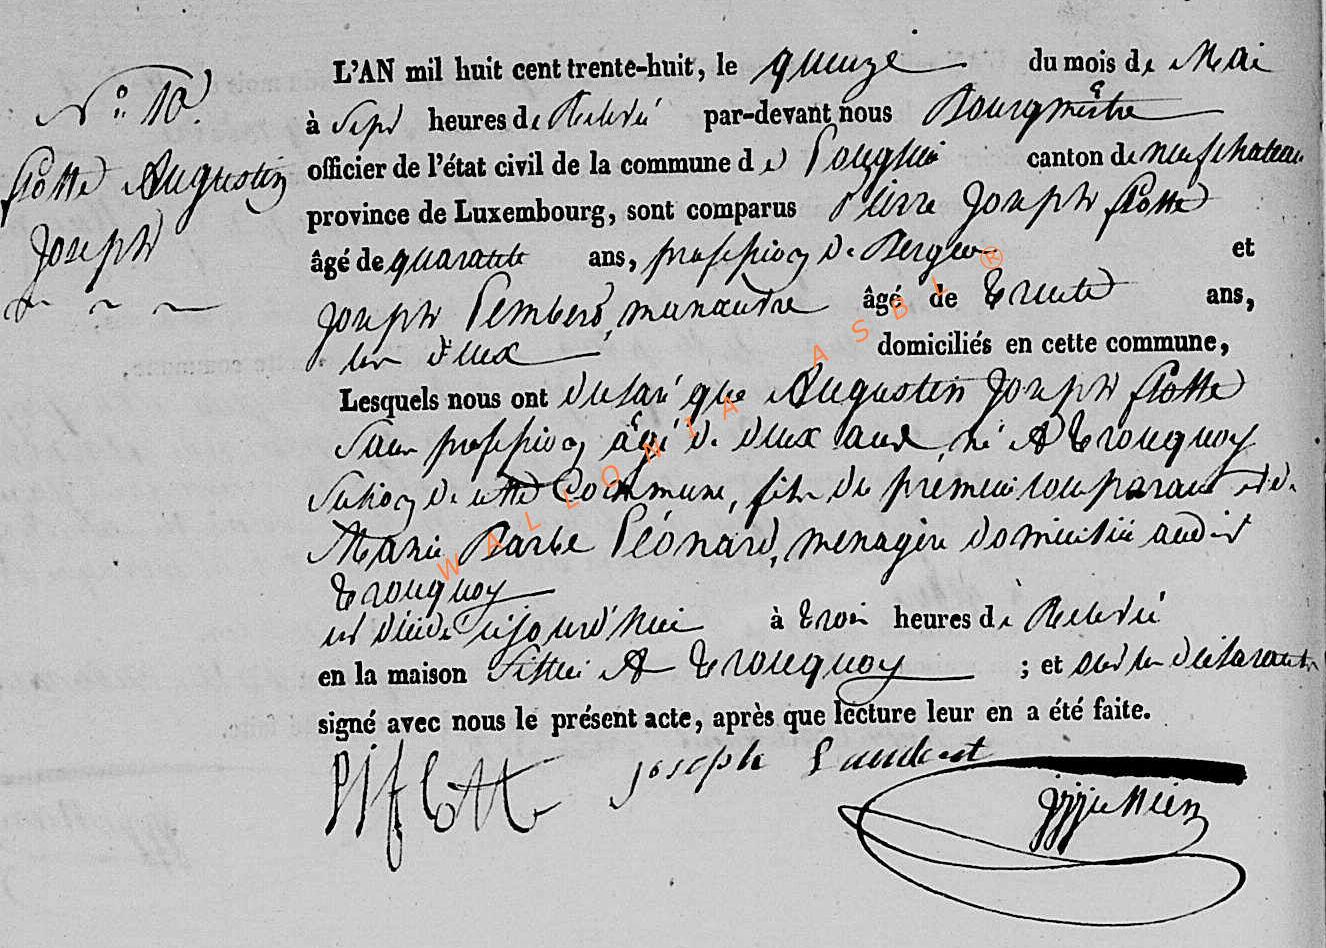 N.° 10.
flotte Augustin
Joseph
L'AN mil huit cent trente-huit, le quinze du mois de Mai
à Sept heures de Relevé par-devant nous Bourgmêstre
officier de l'état civil de la commune de canton de neufchateau
province de Luxembourg, sont comparus Pierre Joseph flotte
âgé de quarante ans, profession de Berger et
Joseph Lembert, manœuvre âgé de trente ans,
les deux domiciliés en cette commune,
Lesquels nous ont déclaré que Augustin Joseph flotte
Sans profession âgé de deux ans, né A Trouquoy
Section de cette Commune, fils du premier comparant et de
Marie Barbe Léonard, menagère domiciliée audit
Trouquoy
est décédé aujourd'hui à trois heures de Relevé
en la maison Sittuée A Trouquoy ; et ont les déclarants
signé avec nous le présent acte, après que lecture leur en a été faite.
PJ flotte Joseph
WALLONIA ASBL ®